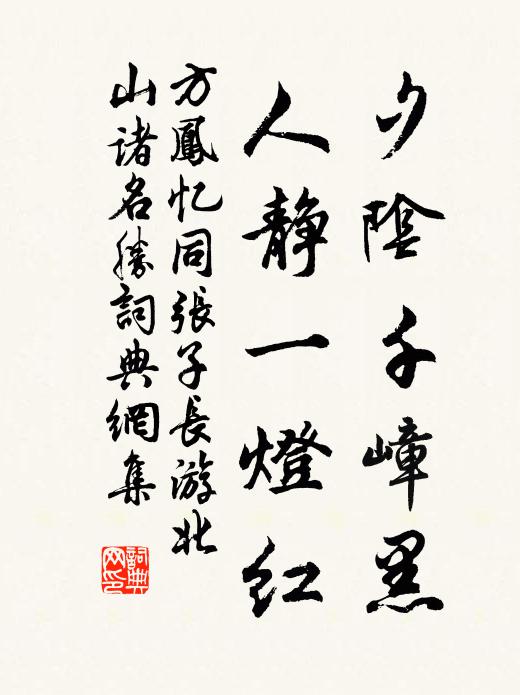 夕陰千嶂黑
人靜一燈红
方鳳忆同張子長游北
山诸名勝詞典網集
詞典網印